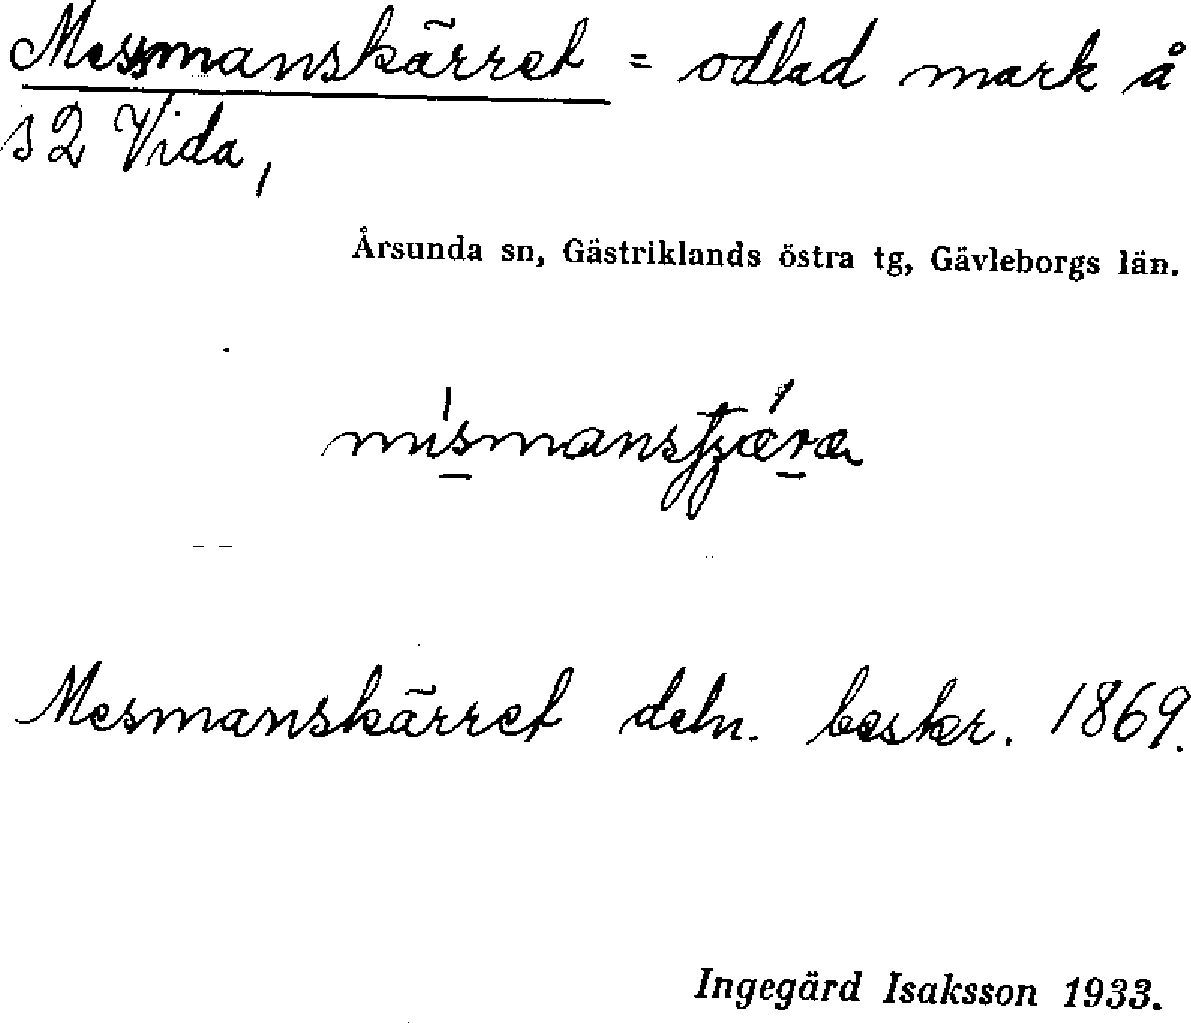 Messmanskärret = odlad mark å
s 2 Vida,
Årsunda sn, Gästriklands östra tg, Gävleborgs län.
Mesmanskärret deln. beskr. 1869.
Ingegärd Isaksson 1933.